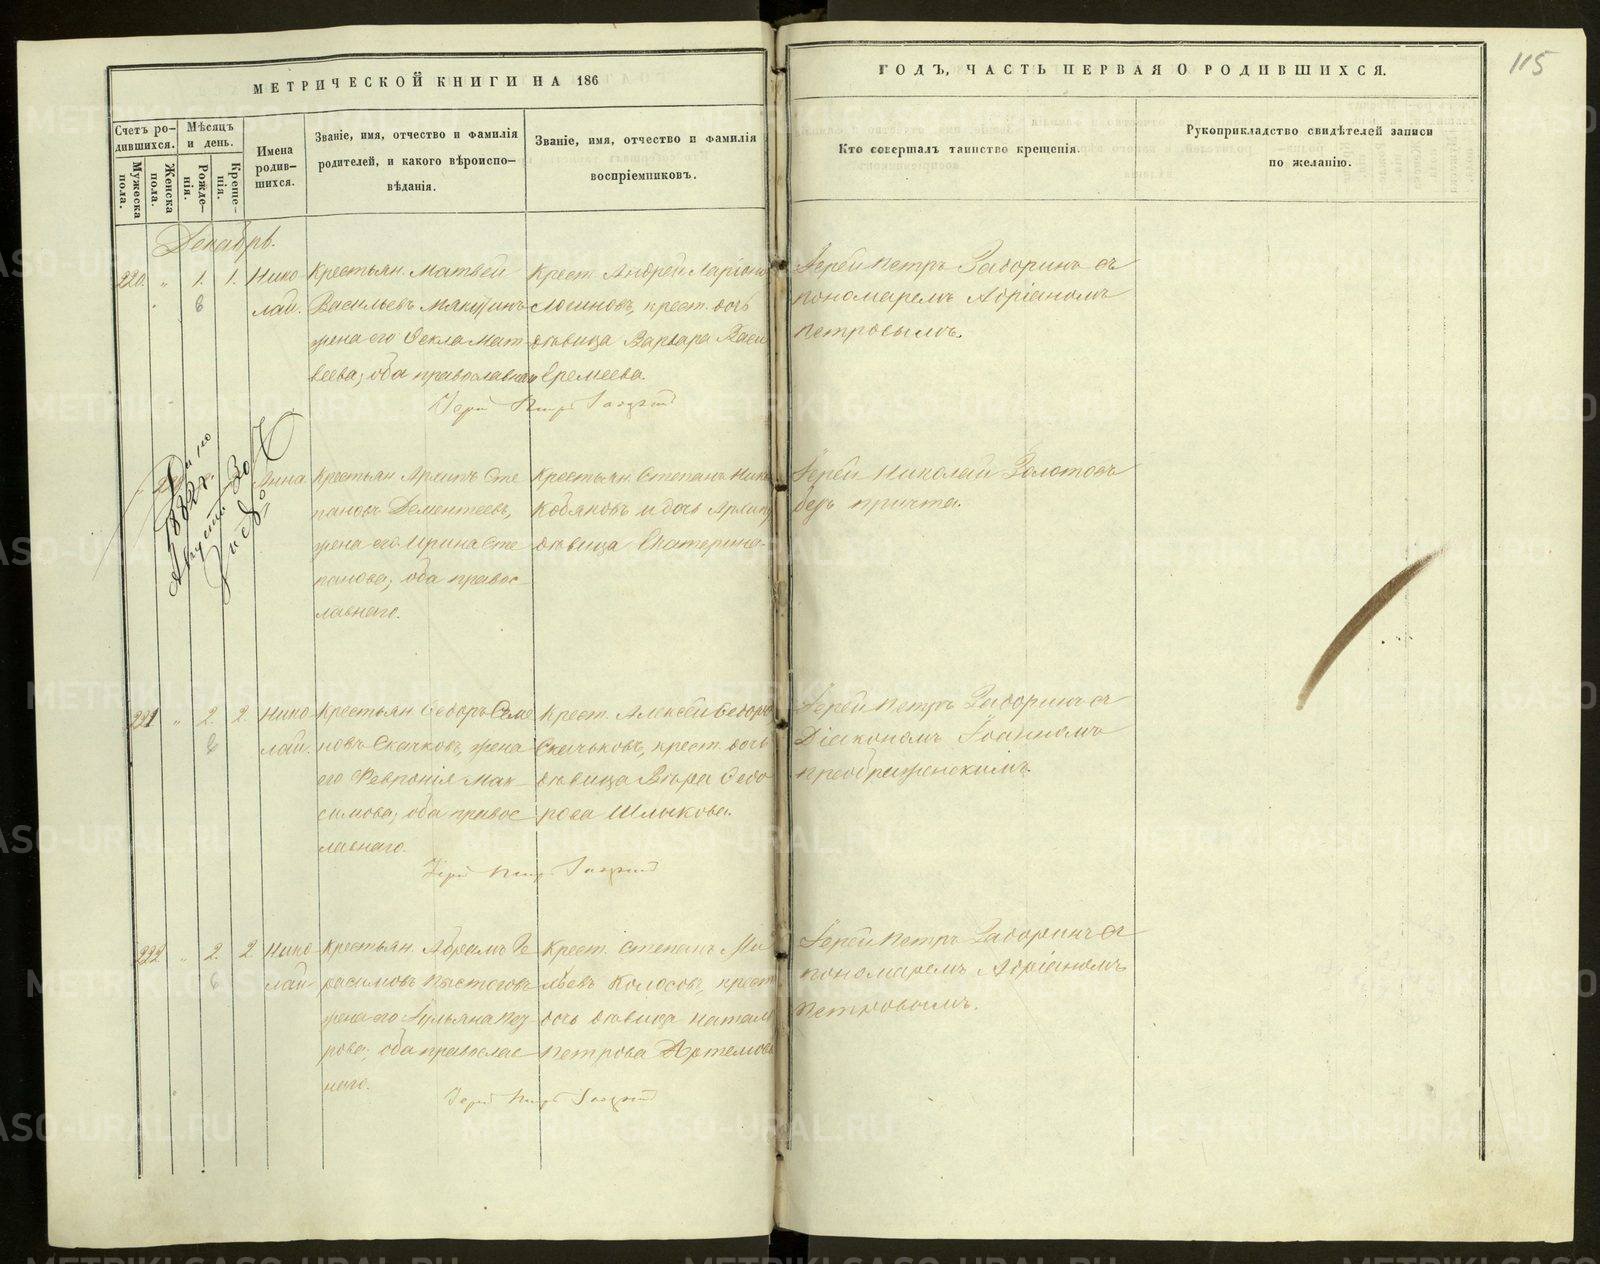 МЕТРИЧЕСКОЙ КНИГИ НА 186
ГОДЪ, ЧАСТЬ ПЕРВАЯ О РОДИВШИХСЯ.
115
Счетъ ро-
дившихся.
Мужеска
пола.
Женска
пола.
Мѣсяцъ
и день.
Рожде-
нія.
Креще-
нія.
Имена
родив-
шихся.
Званіе, имя, отчество и фамилія
родителей, и какого вѣроиспо-
вѣданія.
Званіе, имя, отчество и фамилія
воспріемниковъ.
Кто совершалъ таинство крещенія.
Рукоприкладство свидѣтелей записи
по желанію.
Декабрь.
220. " 1. 1.
Нико
лай.
Крестьян. Матвей
Васильевъ
жена его Фекла Мат-
веева, оба православнаго
Крест. Андрей Ларіоновъ
Логиновъ, крест. дочь
дѣвица Варвара
Еремеева.
Іерей Петръ Задоринъ съ
пономаремъ Адріаномъ
Петровымъ.
Іерей Петръ
1882 г.
Августа 30
Анна
Крестьян. Архипъ Сте
пановъ Дементеевъ,
жена его Ирина Сте
панова, оба правос
лавнаго.
Крестьян. Степанъ
Кобяковъ и дочь
дѣвица Екатерина.
Іерей Николай Золотовъ
безъ причта.
221 " 2. 2.
Нико
лай.
Крестьян. Ѳедоръ Семе
новъ Скачковъ, жена
его Февронія Мак-
симова, оба правос
лавнаго.
Крест. Алексей Ѳедоровъ
Скачковъ, крест. дочь
дѣвица Вѣра Ѳедо
рова Шлыкова.
Іерей Петръ Задоринъ съ
Діакономъ Іоанномъ
Преображенскимъ.
Іерей Петръ
222 " 2. 2
Нико
лай
Крестьян. Абрамъ Ге
расимовъ
жена его Ульяна Пет
рова, оба православ
наго.
Крест. Степанъ
Колосовъ, крест.
дочь дѣвица Наталья
Петрова Артемова
Іерей Петръ Задоринъ съ
пономаремъ Адріаномъ
Петровымъ.
Іерей Петръ
METRIKI.GASO-URAL.RU